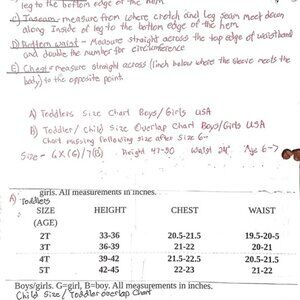 leg to the bottom edge of the hem
C) Inseam - measure from where crotch and leg seam meet down
along inside of leg to the bottom edge of the hem.
D) Bottom waist - Measure straight across the top edge of waistband
and double the number for circumference
E) Chest - measure straight across (1 inch below where the sleeve meets the
body) to the opposite point.
A) Toddlers Size Chart Boys/Girls USA
B) Toddler/Child Size Overlap Chart Boys/Girls USA
Chart missing following size after Size 6
Size - 6X(G)/7(B) Height 47-50 Waist 24" Age 6-7
girls. All measurements in inches.
A) Toddlers
SIZE HEIGHT CHEST WAIST
(AGE)
2T 33-36 20.5-21.5 19.5-20-5
3T 36-39 21-22 20-21
4T 39-42 21.5-22.5 20.5-21.5
5T 42-45 22-23 21-22
Boys/girls. G=girl, B=boy. All measurements in inches.
Child Size/Toddler overlap Chart